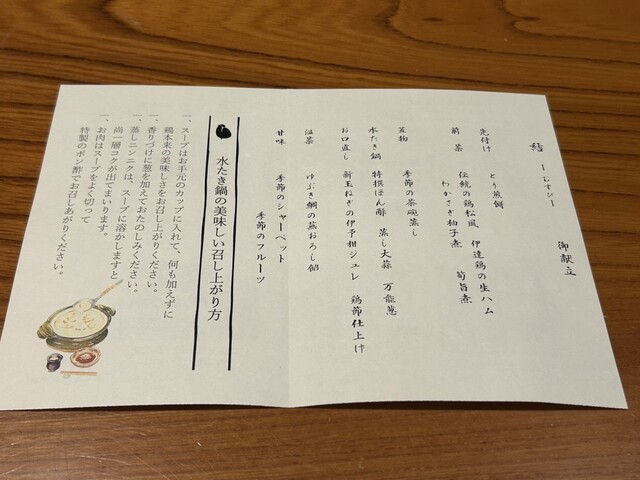 結 ーむすびー 御献立
先付け とり煎餅
前菜 伝統の鶏松風 伊達鶏の生ハム
わかさぎ柚子煮 筍旨煮
蓋物 季節の茶碗蒸し
水たき鍋 特撰ぽん酢 蒸し大蒜 万能葱
お口直し 新玉ねぎの伊予柑ジュレ 鶏節仕上け
温菜 ゆぶき鯛の蕪おろし餡
甘味 季節のシャーベット
季節のフルーツ
水たき鍋の美味しい召し上がり方
一、スープはお手元のカップに入れて、何も加えずに
鶏本来の美味しさをお召し上がりください。
一、香りづけに葱を加えておたのしみください。
一、蒸しニンニクは、スープに溶かしますと
尚一層コクが出てまいります。
一、お肉はスープをよく切って
特製のポン酢でお召しあがりください。